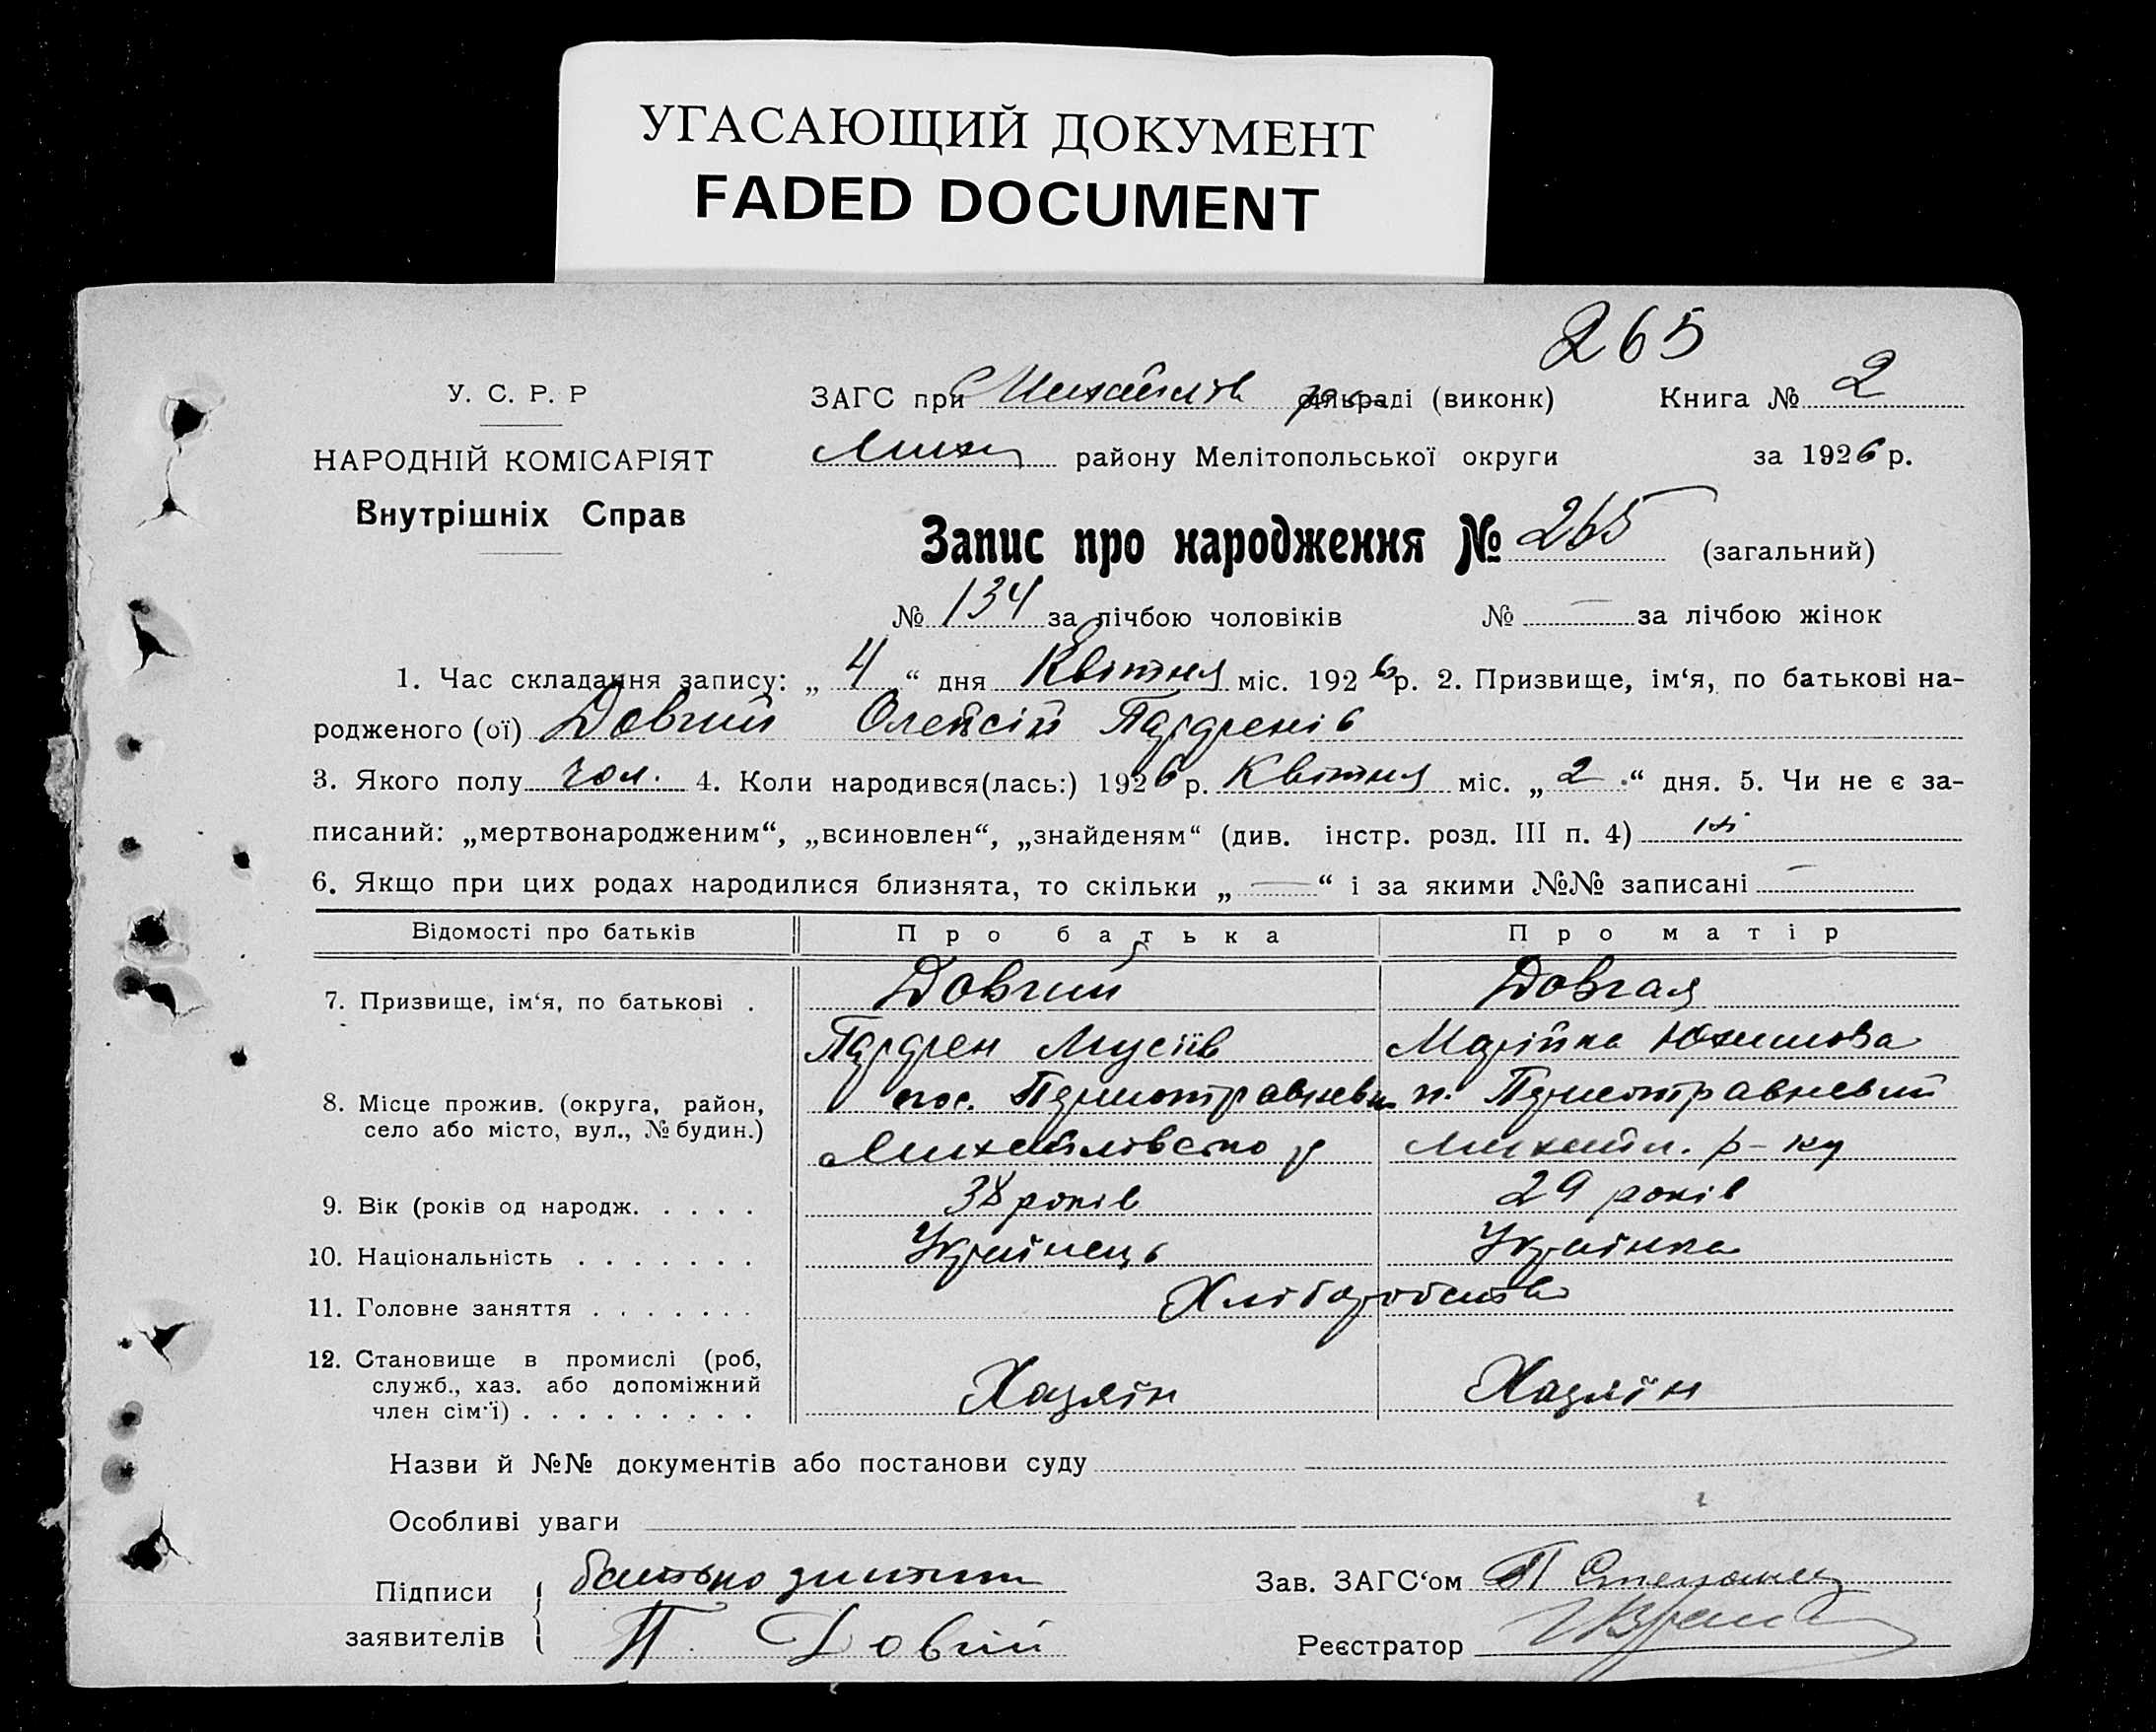 УГАСАЮЩИЙ ДОКУМЕНТ
FADED DOCUMENT
265
У. С. Р. Р
ЗАГС при Михайлів сільраді (виконк) Книга № 2
НАРОДНІЙ КОМІСАРІЯТ
Мих району Мелітопольської округи за 1926 р.
Внутрішніх Справ
Запис про народження № 265 (загальний)
№ 134 за лічбою чоловіків № — за лічбою жінок
1. Час складання запису: „ 4 “ дня Квітня міс. 1926 р. 2. Призвище, ім‘я, по батькові на-
родженого (ої) Довгий Олексій Парфенів
3. Якого полу чол. 4. Коли народився(лась:) 1926 р. Квітня міс. „ 2 “ дня. 5. Чи не є за-
писаний: „мертвонародженим“, „всиновлен“, „знайденям“ (див. інстр. розд. III п. 4) ні
6. Якщо при цих родах народилися близнята, то скільки „ — “ і за якими №№ записані —
Відомості про батьків Про батька Про матір
7. Призвище, ім‘я, по батькові . Довгий Довгая
Парфен Мусіїв Марійка Юхимова
8. Місце прожив. (округа, район, пос. Першотравневий п. Першотравневий
село або місто, вул., № будин.)
Михайлівсько р Михайл. р-ну
9. Вік (років од народж. . . . . 38 років 29 років
10. Національність . . . . . . . Українець Українка
11. Головне заняття . . . . . . . Хліборобство
12. Становище в промислі (роб,
служб., хаз. або допоміжний Хазяїн Хазяїн
член сім‘ї) . . . . . . . . .
Назви й №№ документів або постанови суду
Особливі уваги
Підписи батько дитини Зав. ЗАГС‘ом
заявителів П. Довгий Реєстратор